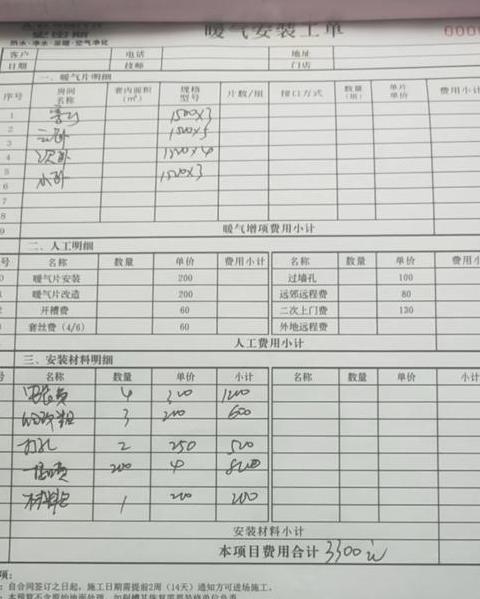 暖气安装工单 000
热水·净水·采暖·空气净化
客户 电话 地址
日期 技师 门店
一、暖气片明细
序号 房间名称 套内面积(m²) 规格型号 片数/组 接口方式 数量(组) 单片单价 费用小计
1 客厅 1500×3
2 主卧 1500×5
3
4 次卧 1500×4
5 小卧 1500×3
6
7
8
9 暖气增项费用小计
二、人工明细
号 名称 数量 单价 费用小计 名称 数量 单价 费用小
0 暖气片安装 200 过墙孔 100
1 暖气片改造 200 远郊远程费 80
2 开槽费 60 二次上门费 130
3 套丝费（4/6） 60 外地远程费
人工费用小计
三、安装材料明细
号 名称 数量 单价 小计 名称 数量 单价 小计
安装费 4 300 1200
3 200 600
打孔 2 250 500
200 4 800
材料包 1 200 200
安装材料小计
本项目费用合计 3300元
项：
自合同签订之日起，施工日期需提前2周（14天）通知方可进场施工。